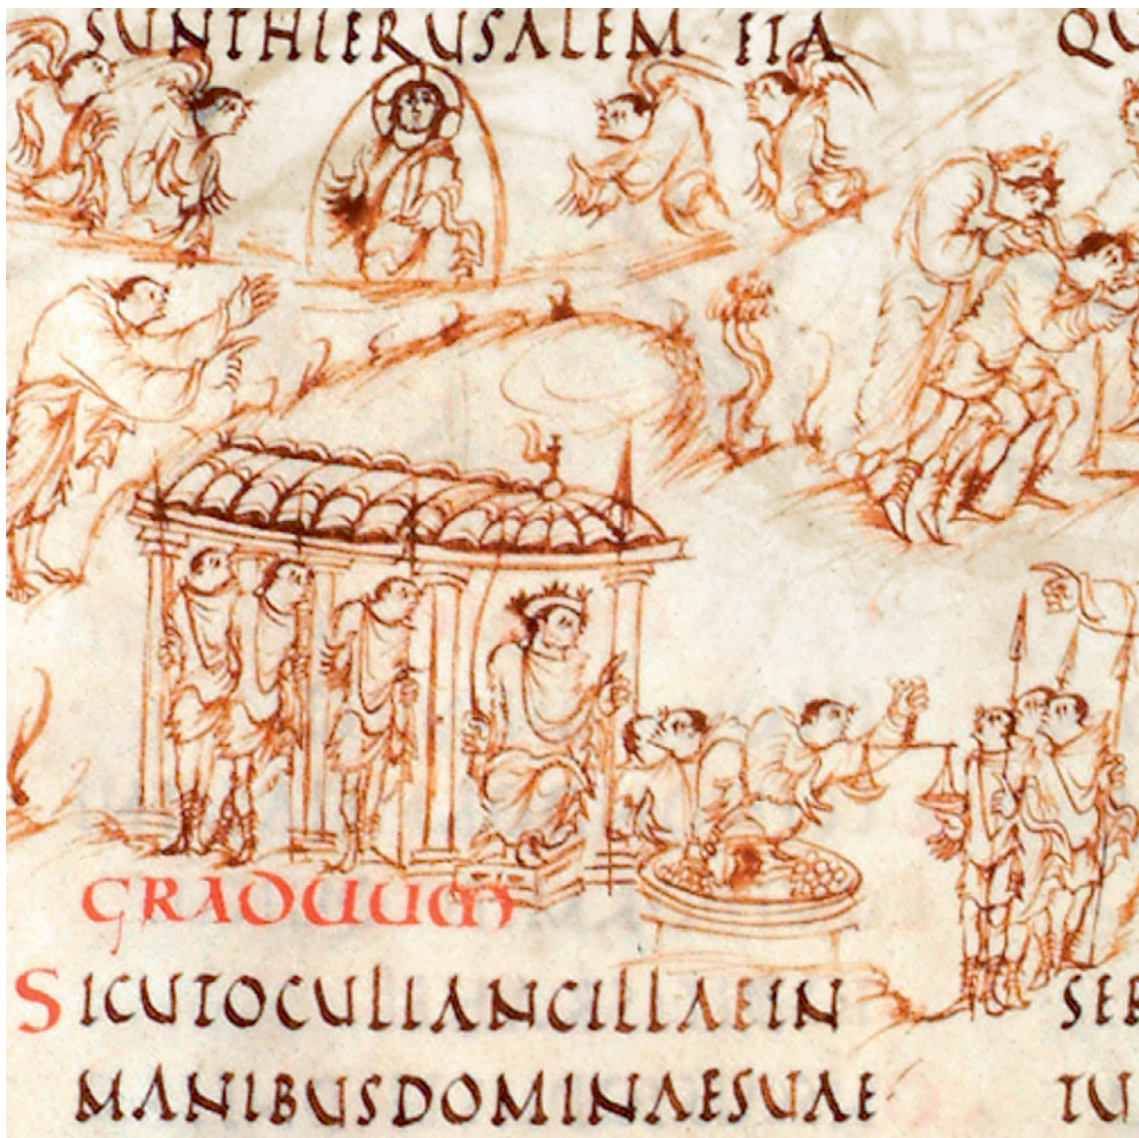 SUNTHIERUSALEM ETA
QU
GRADUUM
SICUTOCULIANCILLAEIN
MANIBUSDOMINAESUAE
SER
TU